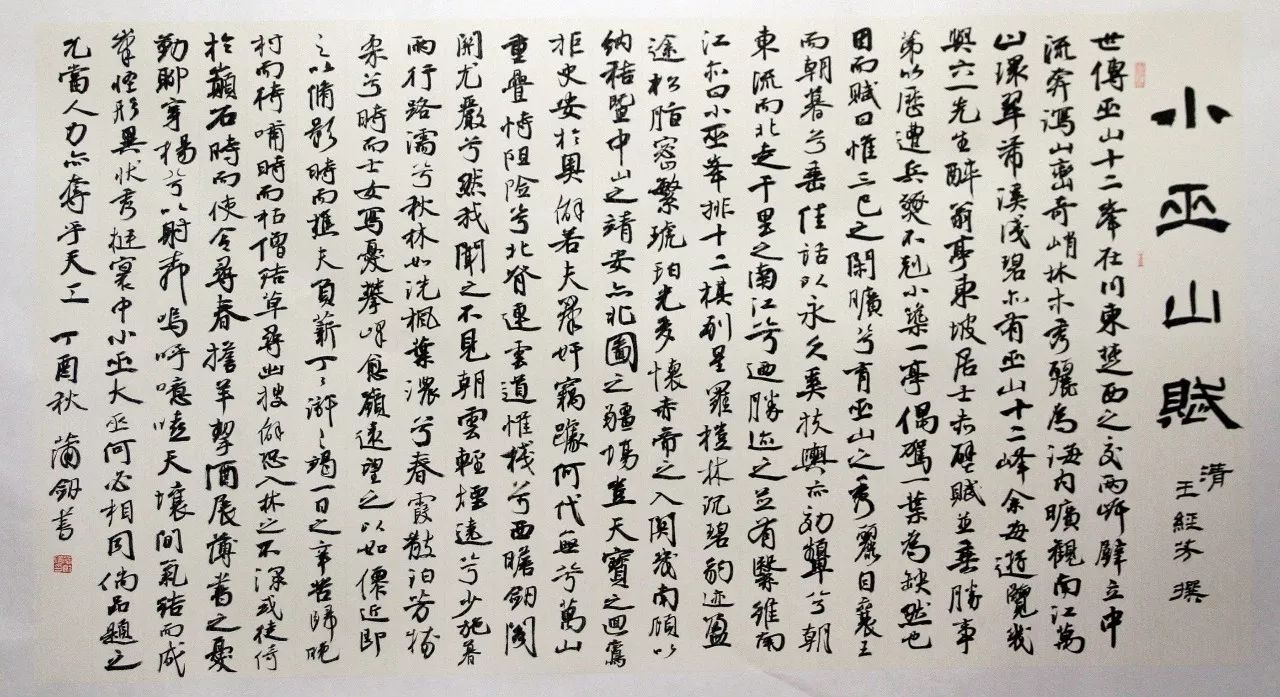 小巫山賦
清
王經芳撰
世傳巫山十二峯在川東楚西之交兩岸壁立中
流奔瀉山巒奇峭林木秀麗為海内曠觀南江萬
山環翠帶溪淺碧亦有巫山十二峰余每遊覽幾
與六一先生醉翁亭東坡居士赤壁賦並垂勝事
第以歷遭兵燹不剋小築一亭偶駕一葉為缺然也
因而賦曰惟三巴之閑曠兮有巫山之秀麗自襄王
而朝暮兮垂佳話以永久奚扶輿亦効顰兮朝
東流而北走千里之南江兮迺勝迹之並有繄維南
江亦曰小巫峯排十二棋列星羅榿林沉碧豹迹盈
途松脂密繁琥珀光多懷赤帝之入関幾南顧以
納秸暨中山之靖安亦北圖之疆場豈天寶之迴鸞
拒史安於奥僻若夫羣奸竊躁何代無兮萬山
重疊恃阻险兮北脊連雲道惟棧兮西瞻釼閣
開尤嚴兮然我聞之不見朝雲輕煙遠兮少施暮
雨行路濡兮秋林如洗楓葉濃兮春霞散泊芳物
柔兮時而士女寫憂攀峰愈嶺遠望之以如儒近即
之以備影時而樵夫負薪丁丁滸滸竭一日之辛苦歸晚
村而碕嘯時而枯僧結草尋幽搜僻恐入林之不深或徒倚
於巔石時而使令尋春擔羊挈酒展薄書之憂
勤聊穿楊兮以射嗚呼噫嘻天壤間氣結而成
峯怪形異状秀挺寰中小巫大巫何必相同倘品題之
尤當人力亦奪乎天工 丁酉秋 蒲釼書